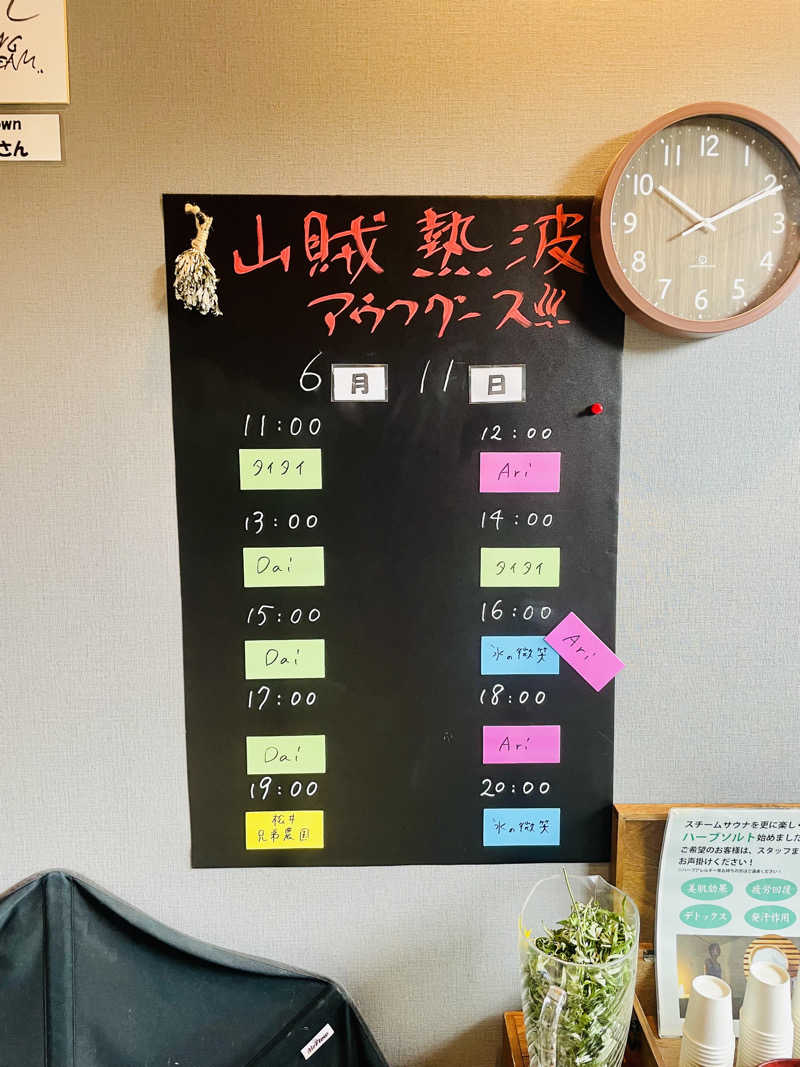 NG
EAM..
own
さん
山賊 熱波
アウフグース!!!
6月 11日
11:00
タイタイ
12:00
Ari
13:00
Dai
14:00
タイタイ
15:00
Dai
16:00
氷の微笑
Ari
17:00
Dai
18:00
Ari
19:00
松井
兄弟農園
20:00
氷の微笑
12
1
2
3
4
5
6
7
8
9
10
11
スチームサウナを更に楽し
ハーブソルト始めました
ご希望のお客様は、スタッフま
お声掛けください!
美肌効果
疲労回復
デトックス
発汗作用